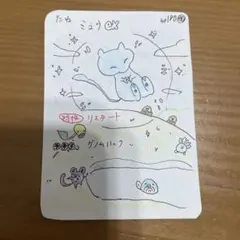 たね ミュウex HP180
特性 リスタート
ゲノムハック